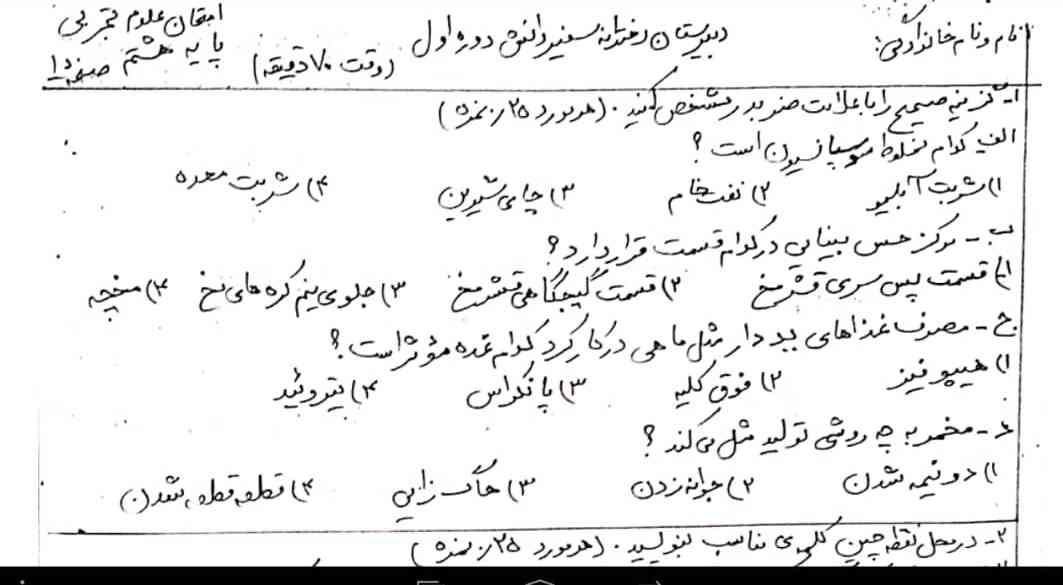 نام و نام خانوادگی: دبیرستان دخترانه سفیر دانش دوره اول امتحان علوم تجربی
(وقت ۷۰ دقیقه) پایه هشتم صفحه ۱
۱- گزینه صحیح را با علامت ضربدر مشخص کنید. (هر مورد ۲۵/. نمره)
الف- کدام مخلوط سوسپانسیون است؟
۱) شربت آبلیمو ۲) نفت خام ۳) چای شیرین ۴) شربت معده
ب- مرکز حس بینایی در کدام قسمت قرار دارد؟
۱) قسمت پس سری قشر مخ ۲) قسمت گیجگاهی قشر مخ ۳) جلوی نیم کره های مخ ۴) مخچه
ج- مصرف غذاهای ید دار مثل ماهی در کارکرد کدام غده مؤثر است؟
۱) هیپوفیز ۲) فوق کلیه ۳) پانکراس ۴) تیروئید
د- مخمر به چه روشی تولید مثل می کند؟
۱) دو نیمه شدن ۲) جوانه زدن ۳) هاگ زایی ۴) قطعه قطعه شدن
۲- در محل نقطه چین کلمه ی مناسب بنویسید. (هر مورد ۲۵/. نمره)